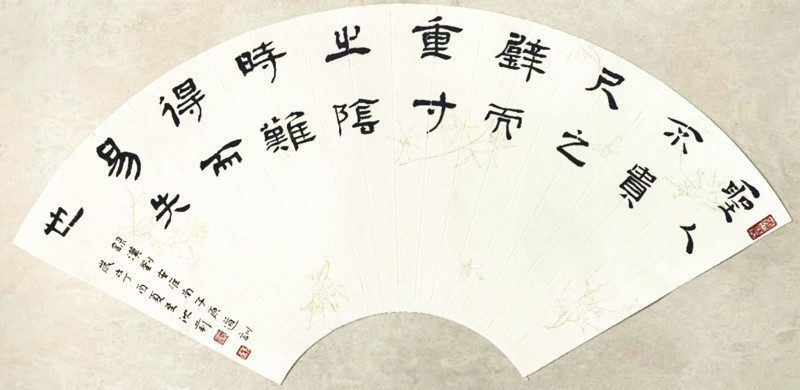 聖人
不貴
尺之
璧而
重寸
之陰
時難
得而
易失
也
錄漢劉安淮南子原道訓
歲在丁酉夏至